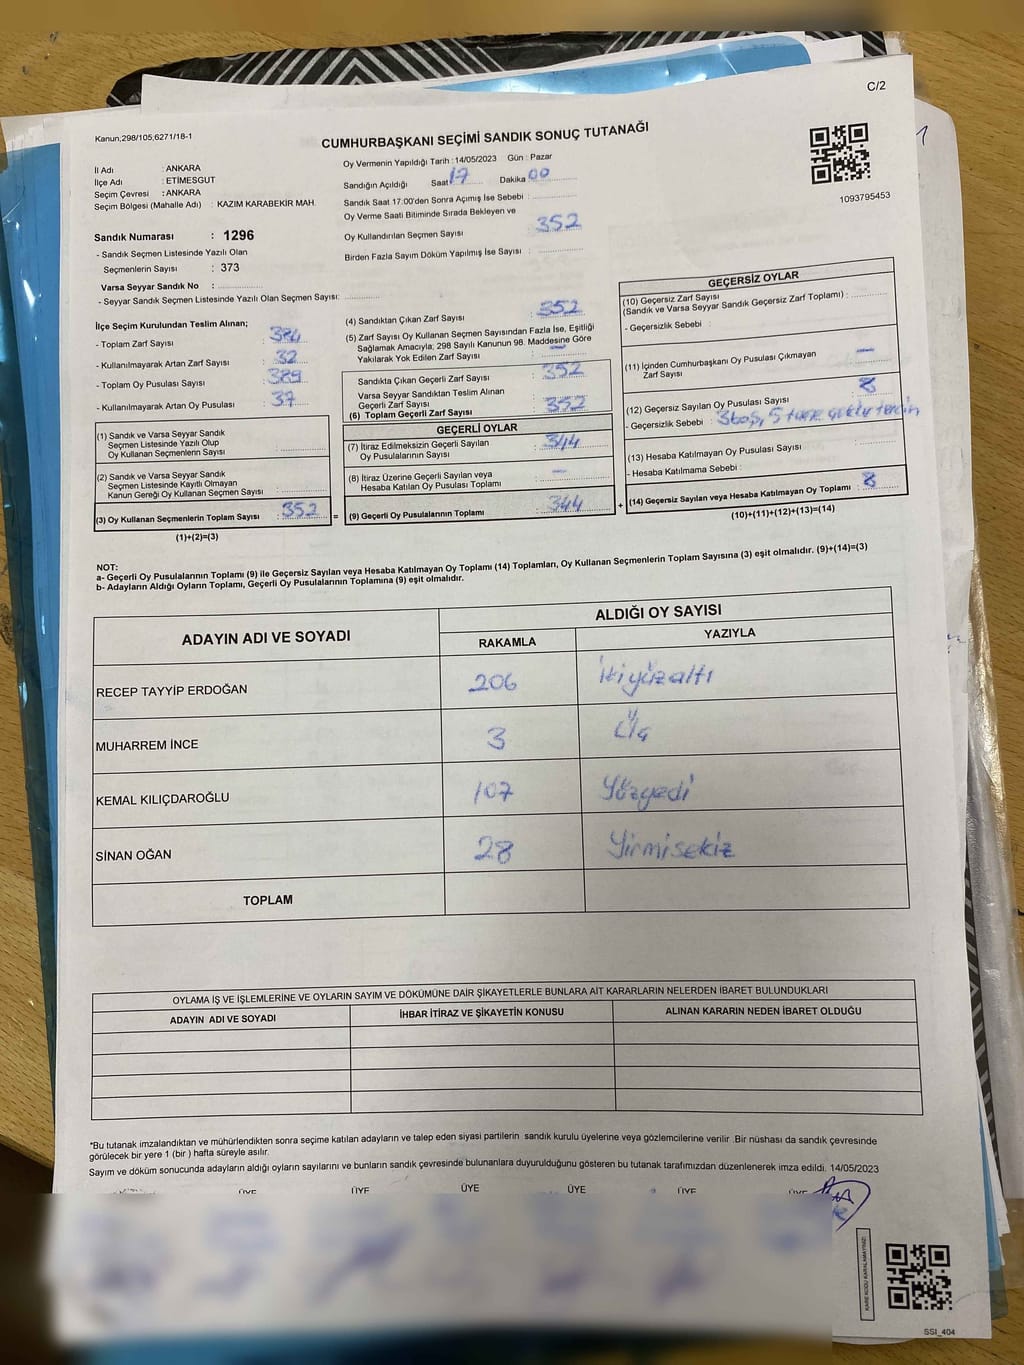 C/2
Kanun,298/105,6271/18-1
CUMHURBAŞKANI SEÇİMİ SANDIK SONUÇ TUTANAĞI
1093795453
İl Adı : ANKARA
İlçe Adı : ETIMESGUT
Seçim Çevresi : ANKARA
Seçim Bölgesi (Mahalle Adı) : KAZIM KARABEKİR MAH.
Sandık Numarası : 1296
- Sandık Seçmen Listesinde Yazılı Olan
Seçmenlerin Sayısı : 373
Varsa Seyyar Sandık No :
- Seyyar Sandık Seçmen Listesinde Yazılı Olan Seçmen Sayısı:
Oy Vermenin Yapıldığı Tarih : 14/05/2023 Gün : Pazar
Sandığın Açıldığı Saat 17 Dakika 00
Sandık Saat 17:00'den Sonra Açımış İse Sebebi :
Oy Verme Saati Bitiminde Sırada Bekleyen ve
Oy Kullandırılan Seçmen Sayısı : 352
Birden Fazla Sayım Döküm Yapılmış İse Sayısı :
İlçe Seçim Kurulundan Teslim Alınan;
- Toplam Zarf Sayısı : 384
- Kullanılmayarak Artan Zarf Sayısı : 32
- Toplam Oy Pusulası Sayısı : 389
- Kullanılmayarak Artan Oy Pusulası : 37
(1) Sandık ve Varsa Seyyar Sandık
Seçmen Listesinde Yazılı Olup
Oy Kullanan Seçmenlerin Sayısı :
(2) Sandık ve Varsa Seyyar Sandık
Seçmen Listesinde Kayıtlı Olmayan
Kanun Gereği Oy Kullanan Seçmen Sayısı :
(3) Oy Kullanan Seçmenlerin Toplam Sayısı : 352
(1)+(2)=(3)
=
(4) Sandıktan Çıkan Zarf Sayısı : 352
(5) Zarf Sayısı Oy Kullanan Seçmen Sayısından Fazla İse, Eşitliği
Sağlamak Amacıyla; 298 Sayılı Kanunun 98. Maddesine Göre
Yakılarak Yok Edilen Zarf Sayısı : —
Sandıkta Çıkan Geçerli Zarf Sayısı : 352
Varsa Seyyar Sandıktan Teslim Alınan
Geçerli Zarf Sayısı :
(6) Toplam Geçerli Zarf Sayısı : 352
GEÇERLİ OYLAR
(7) İtiraz Edilmeksizin Geçerli Sayılan
Oy Pusulalarının Sayısı : 344
(8) İtiraz Üzerine Geçerli Sayılan veya
Hesaba Katılan Oy Pusulası Toplamı : —
(9) Geçerli Oy Pusulalarının Toplamı : 344
+
GEÇERSİZ OYLAR
(10) Geçersiz Zarf Sayısı
(Sandık ve Varsa Seyyar Sandık Geçersiz Zarf Toplamı) :
- Geçersizlik Sebebi :
(11) İçinden Cumhurbaşkanı Oy Pusulası Çıkmayan
Zarf Sayısı : —
(12) Geçersiz Sayılan Oy Pusulası Sayısı : 8
- Geçersizlik Sebebi : 3 boş, 5 tane çoklu tercih
(13) Hesaba Katılmayan Oy Pusulası Sayısı :
- Hesaba Katılmama Sebebi :
(14) Geçersiz Sayılan veya Hesaba Katılmayan Oy Toplamı : 8
(10)+(11)+(12)+(13)=(14)
NOT:
a- Geçerli Oy Pusulalarının Toplamı (9) ile Geçersiz Sayılan veya Hesaba Katılmayan Oy Toplamı (14) Toplamları, Oy Kullanan Seçmenlerin Toplam Sayısına (3) eşit olmalıdır. (9)+(14)=(3)
b- Adayların Aldığı Oyların Toplamı, Geçerli Oy Pusulalarının Toplamına (9) eşit olmalıdır.
ADAYIN ADI VE SOYADI
ALDIĞI OY SAYISI
RAKAMLA YAZIYLA
RECEP TAYYİP ERDOĞAN 206 İkiyüzaltı
MUHARREM İNCE 3 Üç
KEMAL KILIÇDAROĞLU 107 Yüzyedi
SİNAN OĞAN 28 Yirmisekiz
TOPLAM
OYLAMA İŞ VE İŞLEMLERİNE VE OYLARIN SAYIM VE DÖKÜMÜNE DAİR ŞİKAYETLERLE BUNLARA AİT KARARLARIN NELERDEN İBARET BULUNDUKLARI
ADAYIN ADI VE SOYADI İHBAR İTİRAZ VE ŞİKAYETİN KONUSU ALINAN KARARIN NEDEN İBARET OLDUĞU
*Bu tutanak imzalandıktan ve mühürlendikten sonra seçime katılan adayların ve talep eden siyasi partilerin sandık kurulu üyelerine veya gözlemcilerine verilir .Bir nüshası da sandık çevresinde
görülecek bir yere 1 (bir ) hafta süreyle asılır.
Sayım ve döküm sonucunda adayların aldığı oyların sayılarını ve bunların sandık çevresinde bulunanlara duyurulduğunu gösteren bu tutanak tarafımızdan düzenlenerek imza edildi. 14/05/2023
ÜYE ÜYE ÜYE ÜYE ÜYE ÜYE
KARE KODU KARALAMAYINIZ!
SSI_404